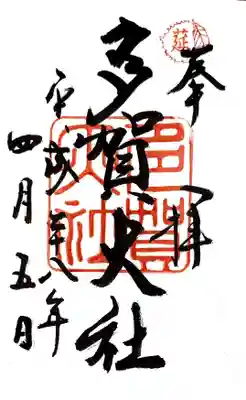 奉拝
多賀大社
平成二十八年
四月五日
多賀大社